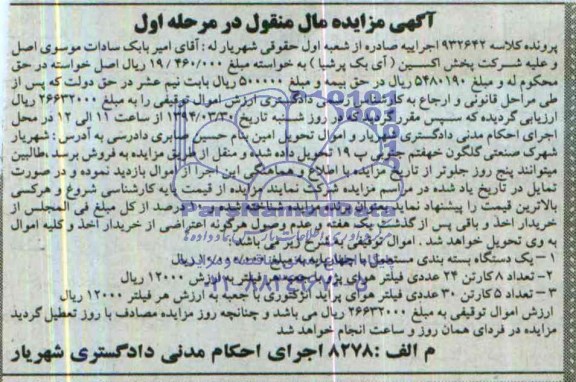 آگهی مزایده مال منقول در مرحله اول
پرونده کلاسه ۹۳۲۶۴۲ اجراییه صادره از شعبه اول حقوقی شهریار له : آقای امیر بابک سادات موسوی اصل
و علیه شرکت پخش اکسین ( آی بک پرشیا ) به خواسته مبلغ ۱۹/۴۶۰/۰۰۰ ریال اصل خواسته در حق
محکوم له و مبلغ ۵۴۸۰۱۹۰ ریال در حق بیمه و مبلغ ۵۰۰۰۰۰ ریال بابت نیم عشر در حق دولت که پس از
طی مراحل قانونی و ارجاع به کارشناس رسمی دادگستری ارزش اموال توقیفی را به مبلغ ۲۶۶۳۲۰۰۰ ریال
ارزیابی گردیده که سپس مقرر گردید که در روز شنبه تاریخ ۱۳۹۴/۰۳/۳۰ از ساعت ۱۱ الی ۱۲ در محل
اجرای احکام مدنی دادگستری شهریار و اموال تحویل امین حسین صابری دادرسی به آدرس : شهریار
شهرک صنعتی گلگون خ هفتم پ ۱۹ تحویل داده شده و منقل از طریق مزایده به فروش برسد .طالبین
میتوانند پنج روز جلوتر از تاریخ مزایده با اطلاع و هماهنگی این اجرا از اموال بازدید نموده و در صورت
تمایل در تاریخ یاد شده در مراسم مزایده شرکت نمایند مزایده از قیمت پایه کارشناسی شروع و هرکسی
بالاترین قیمت را پیشنهاد نماید بعنوان برنده مزایده شناخته شده درصد از کل مبلغ فی المجلس از
خریدار اخذ و باقی پس از گذشت یک هفته و عدم وصول هرگونه اعتراضی از خریدار اخذ و کلیه اموال
به وی تحویل خواهد شد . اموال توقیفی به شرح زیر می باشد
۱ – یک دستگاه بسته بندی مستعمل به مبلغ ریال
۲- تعداد ۸ کارتن ۲۴ عددی فیلتر هوای پراید هر فیلتر به ارزش ۱۲۰۰۰ ریال
۳ – تعداد ۵ کارتن ۳۰ عددی فیلتر هوای پراید انژکتوری با جعبه به ارزش هر فیلتر ۱۲۰۰۰ ریال
ارزش اموال توقیفی به مبلغ ۲۶۶۳۲۰۰۰ ریال می باشد و چنانچه روز مزایده مصادف با روز تعطیل گردید
مزایده در فردای همان روز و ساعت انجام خواهد شد
م الف :۸۲۷۸ اجرای احکام مدنی دادگستری شهریار
ParsNamadData
۰۲۱-۸۸۳۴۹۶۷۰